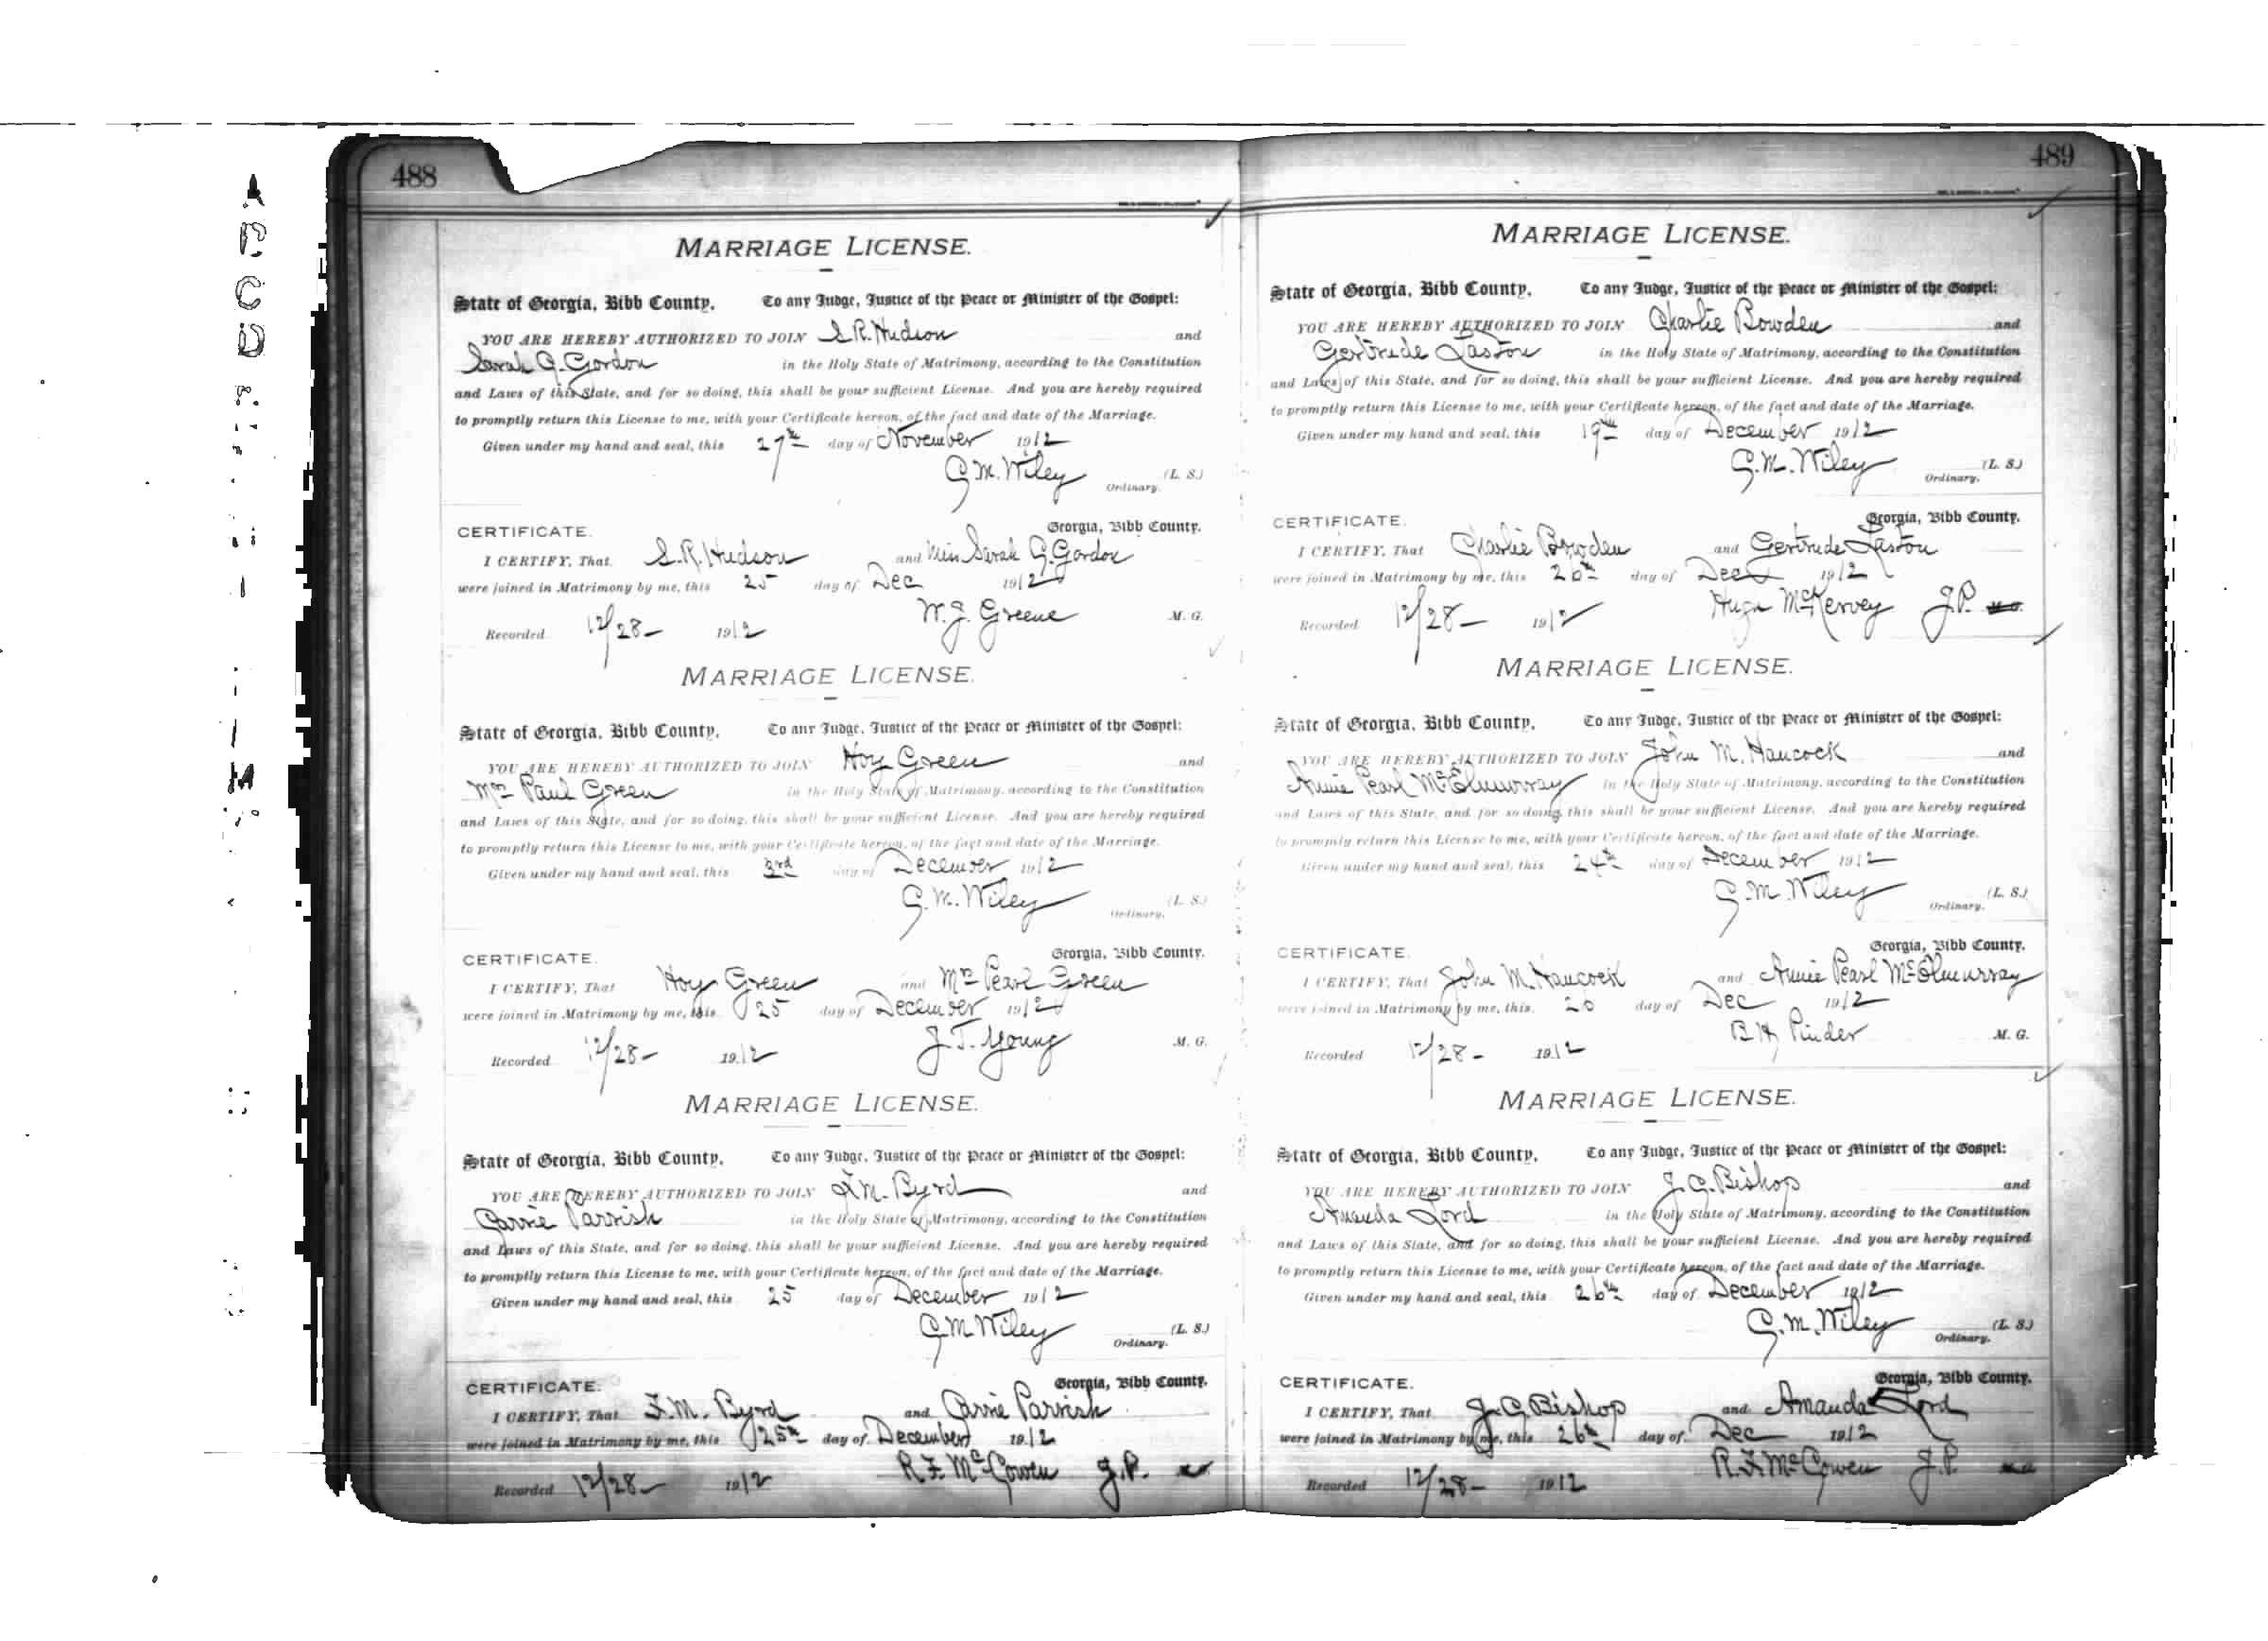 488
MARRIAGE LICENSE.
State of Georgia, Bibb County. To any Judge, Justice of the Peace or Minister of the Gospel:
YOU ARE HEREBY AUTHORIZED TO JOIN S.R. Hudson and
Sarah G. Gordon in the Holy State of Matrimony, according to the Constitution
and Laws of this State, and for so doing, this shall be your sufficient License. And you are hereby required
to promptly return this License to me, with your Certificate hereon, of the fact and date of the Marriage.
Given under my hand and seal, this 27th day of November 1912
G.M. Wiley (L. S.)
Ordinary.
CERTIFICATE. Georgia, Bibb County.
I CERTIFY, That S.R. Hudson and Miss Sarah G. Gordon
were joined in Matrimony by me, this 25 day of Dec 1912
W.J. Greene M. G.
Recorded 12/28- 1912
MARRIAGE LICENSE.
State of Georgia, Bibb County. To any Judge, Justice of the Peace or Minister of the Gospel:
YOU ARE HEREBY AUTHORIZED TO JOIN Hoy Green and
Mrs Paul Green in the Holy State of Matrimony, according to the Constitution
and Laws of this State, and for so doing, this shall be your sufficient License. And you are hereby required
to promptly return this License to me, with your Certificate hereon, of the fact and date of the Marriage.
Given under my hand and seal, this 3rd day of December 1912
G.M. Wiley (L. S.)
Ordinary.
CERTIFICATE. Georgia, Bibb County.
I CERTIFY, That Hoy Green and Mrs Pearl Green
were joined in Matrimony by me, this 25 day of December 1912
J.T. Young M. G.
Recorded 12/28- 1912
MARRIAGE LICENSE.
State of Georgia, Bibb County. To any Judge, Justice of the Peace or Minister of the Gospel:
YOU ARE HEREBY AUTHORIZED TO JOIN F.M. Byrd and
Carrie Parrish in the Holy State of Matrimony, according to the Constitution
and Laws of this State, and for so doing, this shall be your sufficient License. And you are hereby required
to promptly return this License to me, with your Certificate hereon, of the fact and date of the Marriage.
Given under my hand and seal, this 25 day of December 1912
G.M. Wiley (L. S.)
Ordinary.
CERTIFICATE. Georgia, Bibb County.
I CERTIFY, That F.M. Byrd and Carrie Parrish
were joined in Matrimony by me, this 25th day of December 1912
R.F. McCowen J.P.
Recorded 12/28- 1912
489
MARRIAGE LICENSE.
State of Georgia, Bibb County. To any Judge, Justice of the Peace or Minister of the Gospel:
YOU ARE HEREBY AUTHORIZED TO JOIN Charlie Bowden and
Gertrude Laston in the Holy State of Matrimony, according to the Constitution
and Laws of this State, and for so doing, this shall be your sufficient License. And you are hereby required
to promptly return this License to me, with your Certificate hereon, of the fact and date of the Marriage.
Given under my hand and seal, this 19th day of December 1912
G.M. Wiley (L. S.)
Ordinary.
CERTIFICATE. Georgia, Bibb County.
I CERTIFY, That Charlie Bowden and Gertrude Laston
were joined in Matrimony by me, this 26th day of Dec 1912
Hugh McKervey J.P.
Recorded 12/28- 1912
MARRIAGE LICENSE.
State of Georgia, Bibb County. To any Judge, Justice of the Peace or Minister of the Gospel:
YOU ARE HEREBY AUTHORIZED TO JOIN John M. Hancock and
Annie Pearl McElmurray in the Holy State of Matrimony, according to the Constitution
and Laws of this State, and for so doing, this shall be your sufficient License. And you are hereby required
to promptly return this License to me, with your Certificate hereon, of the fact and date of the Marriage.
Given under my hand and seal, this 24th day of December 1912
G.M. Wiley (L. S.)
Ordinary.
CERTIFICATE. Georgia, Bibb County.
I CERTIFY, That John M. Hancock and Annie Pearl McElmurray
were joined in Matrimony by me, this 20 day of Dec 1912
B.H. Pinder M. G.
Recorded 12/28- 1912
MARRIAGE LICENSE.
State of Georgia, Bibb County. To any Judge, Justice of the Peace or Minister of the Gospel:
YOU ARE HEREBY AUTHORIZED TO JOIN J.G. Bishop and
Amanda Lord in the Holy State of Matrimony, according to the Constitution
and Laws of this State, and for so doing, this shall be your sufficient License. And you are hereby required
to promptly return this License to me, with your Certificate hereon, of the fact and date of the Marriage.
Given under my hand and seal, this 26th day of December 1912
G.M. Wiley (L. S.)
Ordinary.
CERTIFICATE. Georgia, Bibb County.
I CERTIFY, That J.G. Bishop and Amanda Lord
were joined in Matrimony by me, this 26th day of Dec 1912
R.F. McCowen J.P.
Recorded 12/28- 1912